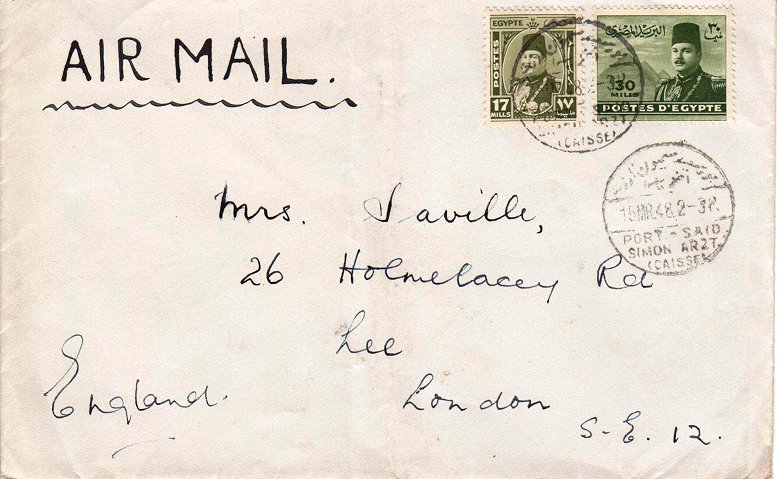 AIR MAIL.
EGYPTE
POSTES
17
MILLS
١٧
البريد المصرى
٣٠
30
MILLS
POSTES D'EGYPTE
(CAISSE)
15 MR.48.2-3P.
PORT-SAID
SIMON ARZT
(CAISSE)
Mrs. Saville,
26 Holmelacey Rd
Lee
London
S-E. 12.
England.